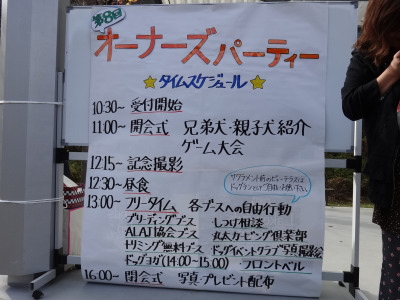 第8回
オーナーズパーティー
☆タイムスケジュール☆
10:30~ 受付開始
11:00~ 開会式 兄弟犬・親子犬紹介
ゲーム大会
12:15~ 記念撮影
12:30~ 昼食
13:00~ フリータイム 各ブースへの自由行動
ブリーディングブース しつけ相談
ALAJ協会ブース 丸太カービング倶楽部
トリミング無料ブース ドッグイベントクラブ写真撮影会
ドッグヨガ(14:00~15:00) フロントベル
16:00~ 閉会式 写真・プレゼント配布